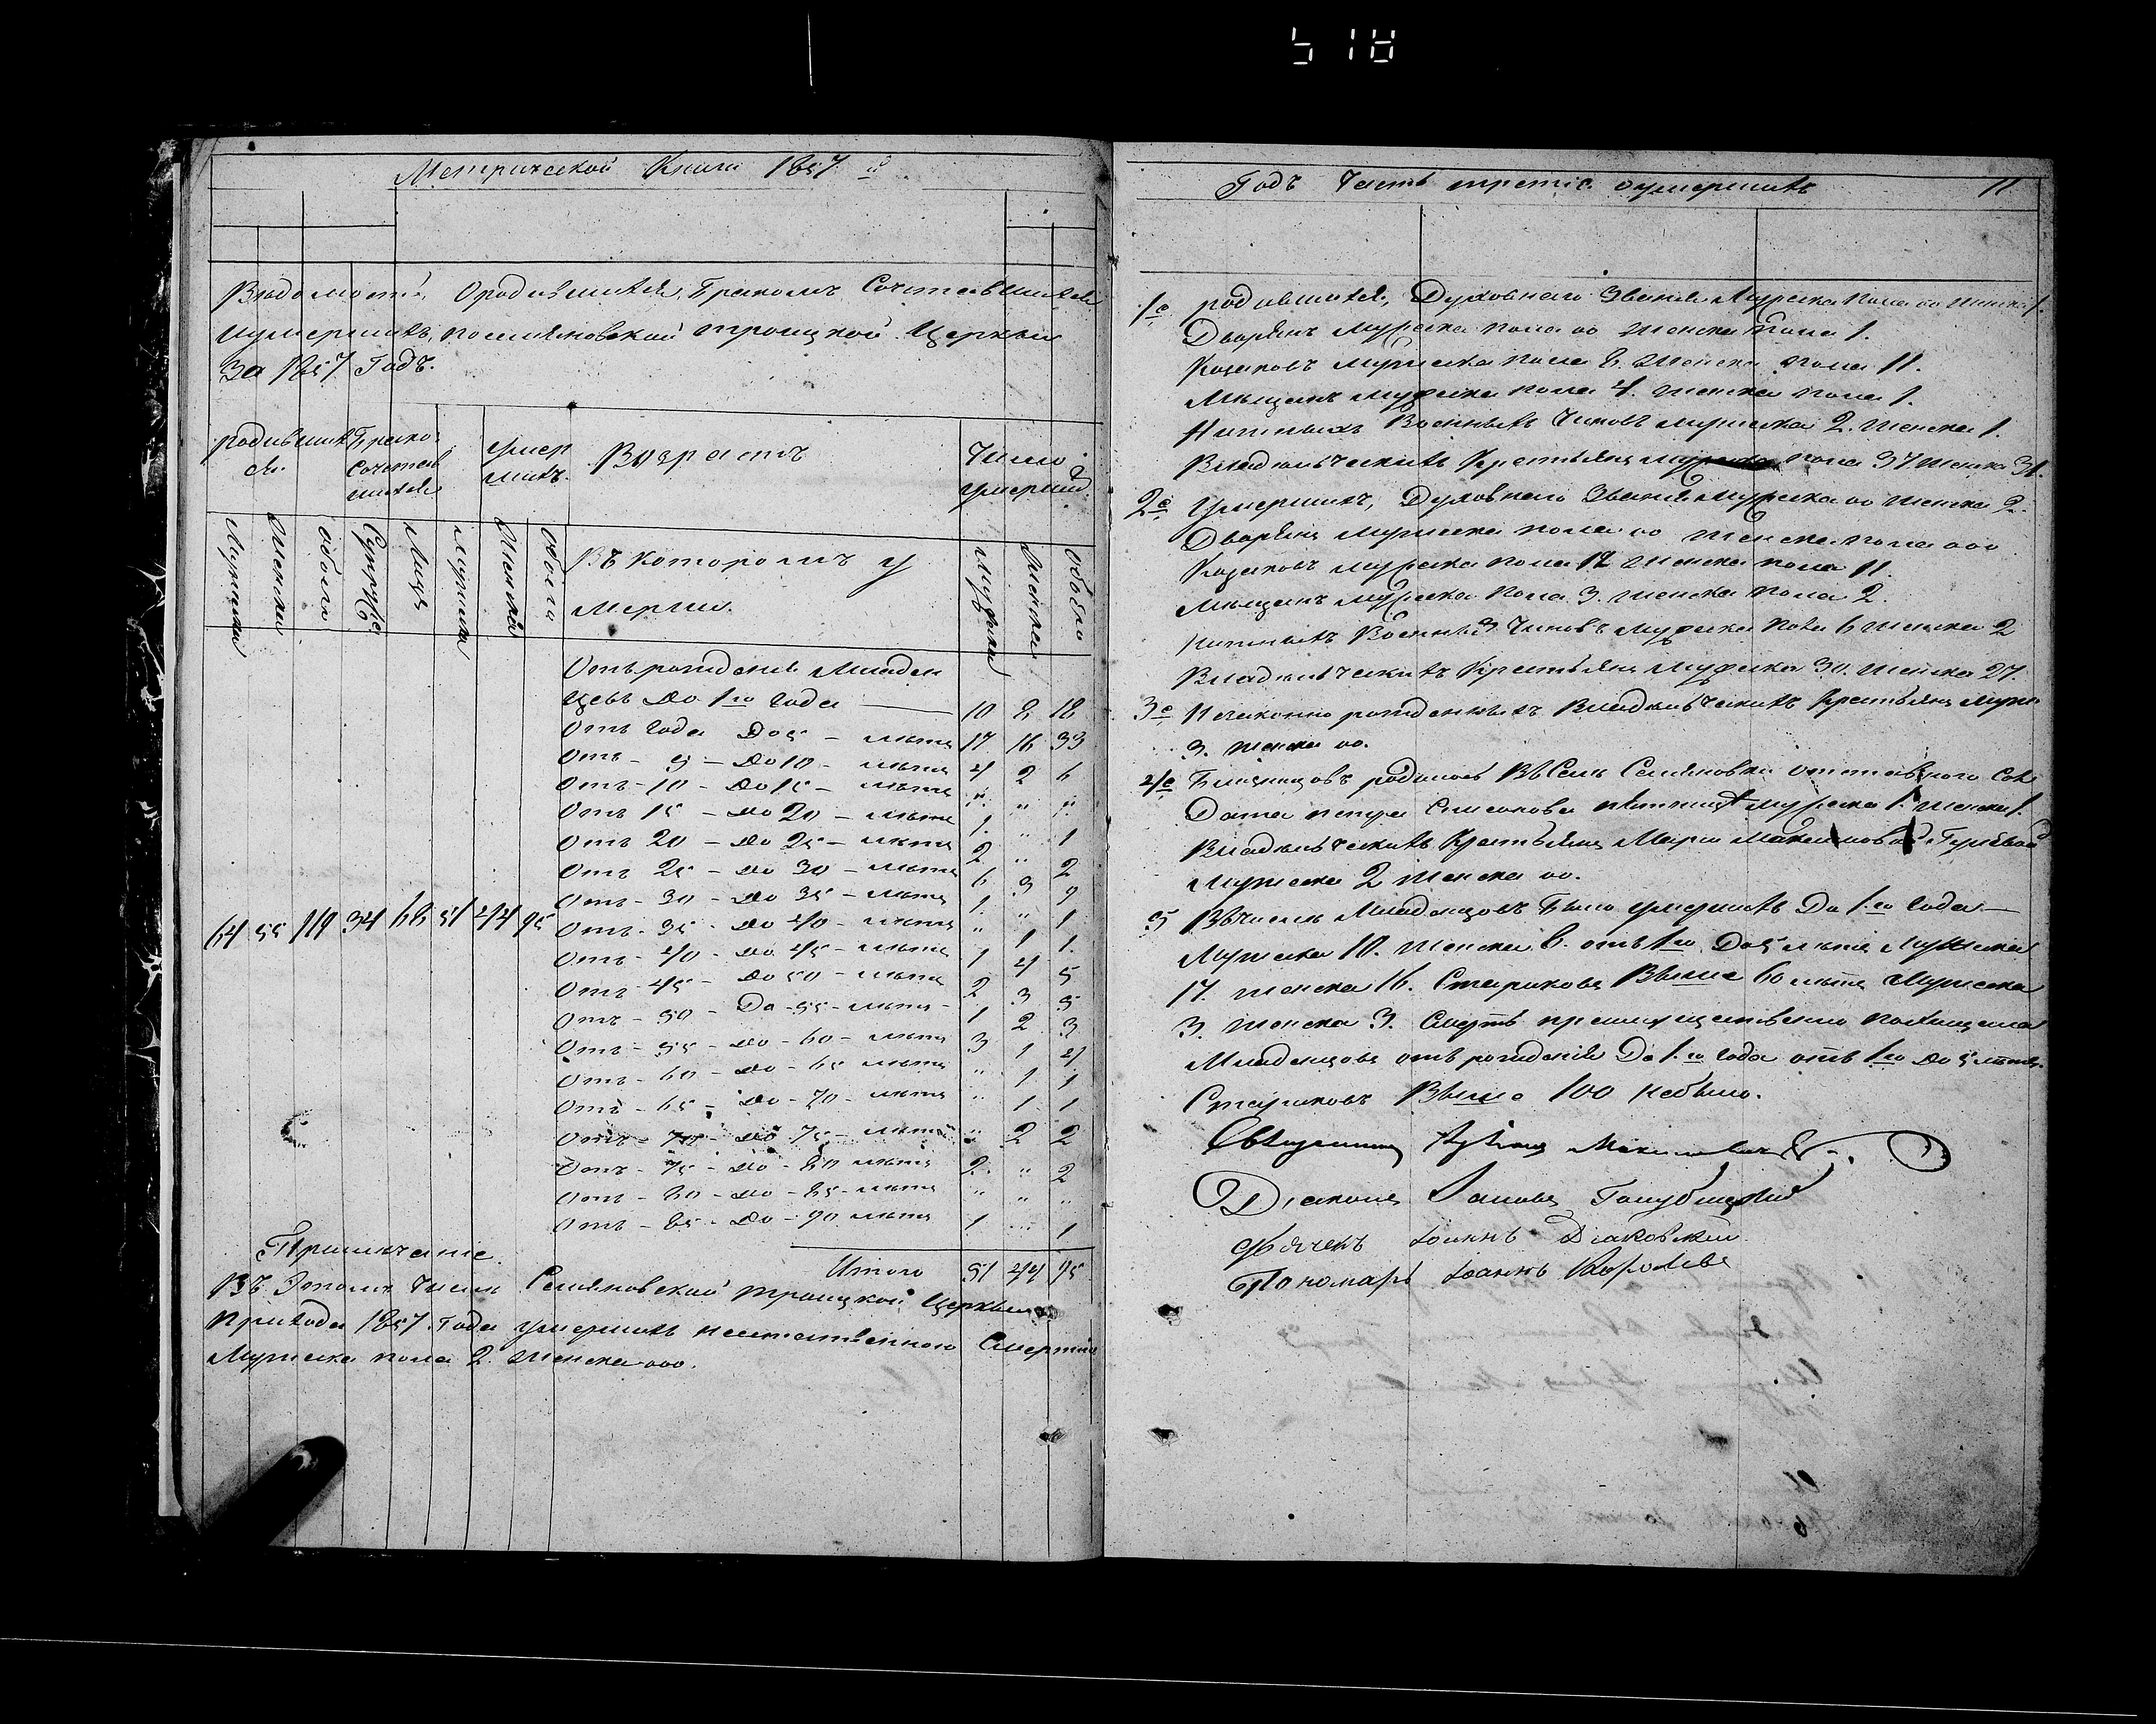 518
Метрической Книги 1857 й
Ведомость, О родившихся, Браком Сочетавшихся
и умершихъ, по Семяновской Троицкой Церкви
За 1857 Годъ.
родивших ся. Брако Сочетав шихся умер шихъ. Возрастъ Число умерших.
Мужеска Женска обоего Супруже Лицъ мужска Женска обоего Въ которомъ у мерли. мужска Женска обоего
Отъ рождения Младен
цевъ до 1го года 10 8 18
Отъ года До 5 - летъ 17 16 33
Отъ - 5 - до 10 - летъ 4 2 6
Отъ - 10 - до 15 - летъ " " "
Отъ 15 - до 20 - летъ 1. " 1
Отъ 20 - до 25 - летъ 2 " 2
Отъ 25 - до 30 - летъ 6 3 9
Отъ - 30 - до 35 - летъ 1. " 1
Отъ - 35 - до 40 - летъ " 1 1.
Отъ - 40 - до 45 - летъ 1 4 5
Отъ - 45 - до 50 - летъ 2 3 5
Отъ - 50 - До - 55 - летъ - 1 2 3
Отъ - 55 - до - 60 - летъ 3 1 4
Отъ - 60 - до - 65 летъ " 1 1
Отъ - 65 - до - 70 - летъ " 1 1
Отъ - 70 - до 75 - летъ " 2 2
Отъ - 75 - до - 80 летъ 2. " 2
Отъ - 80 - до - 85 - летъ " " "
Отъ - 85 - до - 90 летъ 1 " 1
64 55 119 34 68 51 44 95
Итого 51 44 95
Примечание.
Въ Этомъ Числе Семяновской троицкой Церкви
прихода 1857. Года умершихъ неестественною Смертию
Мужеска пола 2. Женска ооо.
Годъ Часть третіе о умершихъ 11
1е родившихся, Духовнаго Звания Мужеска пола оо женска 1.
Дворянъ мужеска пола оо женска пола 1.
Козаковъ мужеска пола 8. женска пола 11.
Мещанъ мужеска пола 4. женска пола 1.
Нижныхъ Военныхъ Чиновъ мужеска 2. женска 1.
Владельческихъ Крестьянъ мужеска пола 37. женска 31.
2е, Умершихъ, Духовнаго Звания Мужеска оо женска 2.
Дворянъ мужеска пола оо женска пола ооо
Козаковъ мужеска пола 12 женска пола 11.
Мещанъ мужеска пола 3. женска пола 2.
нижныхъ Военныхъ Чиновъ мужеска пола 6 женска 2
Владельческихъ Крестьянъ мужеска 30. женска 27.
3е Незаконно рожденныхъ Владельческихъ Крестьянъ муже
3. женска оо.
4е Близнецовъ родилось Въ Селе Семяновки отставного Сол
Дата петра мужеска 1. женска 1.
Владельческихъ Крестьянъ Марии
Мужеска 2 женска оо.
5 Въ числе Младенцовъ Было умершихъ До 1.го года —
Мужеска 10. женска 8. отъ 1го До 5 летъ Мужеска
17. женска 16. Стариковъ Выше 60 летъ Мужеска
3. женска 3. Смерть преимущественно похищала
Младенцовъ отъ рождения До 1.го года отъ 1го до 5 летъ.
Стариковъ Выше 100 небыло.
Священникъ
Диаконъ Голубицкий
Дьячекъ Іоаннъ Диаковский
Пономарь Іоаннъ Королевъ